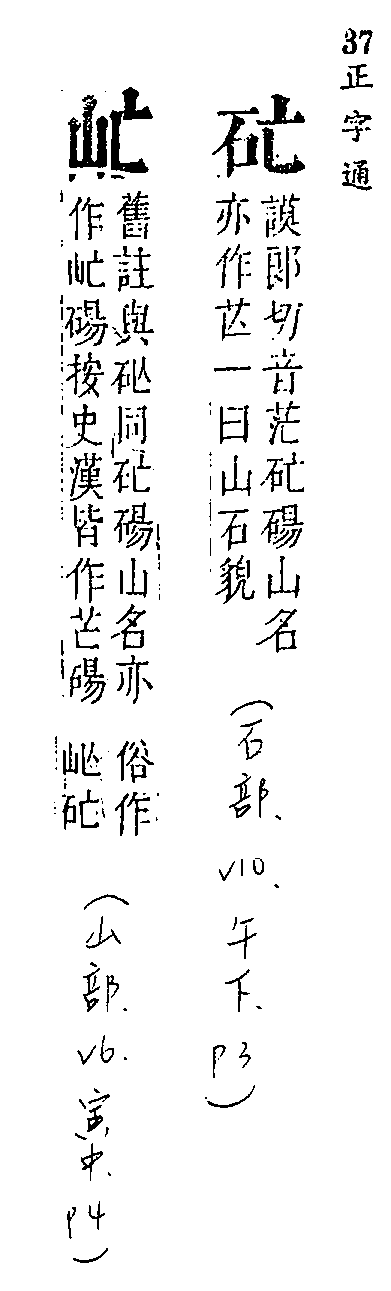 37正字通
謨郎切音茫碭山名
亦作芒一曰山石貌
(石部.v10.午下.p3)
舊註與同碭山名亦 俗作
作碭按史漢皆作芒碭
(山部.v6.寅中.p4)